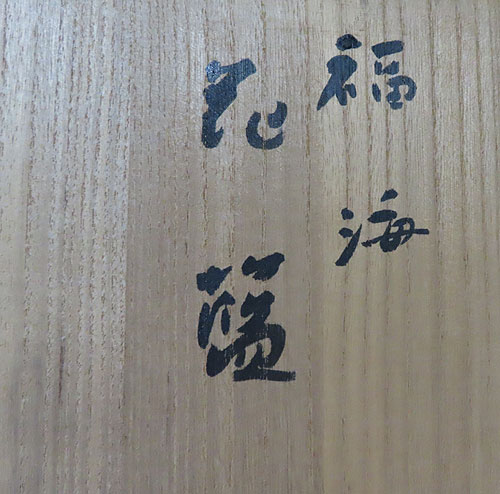 福海
花籃